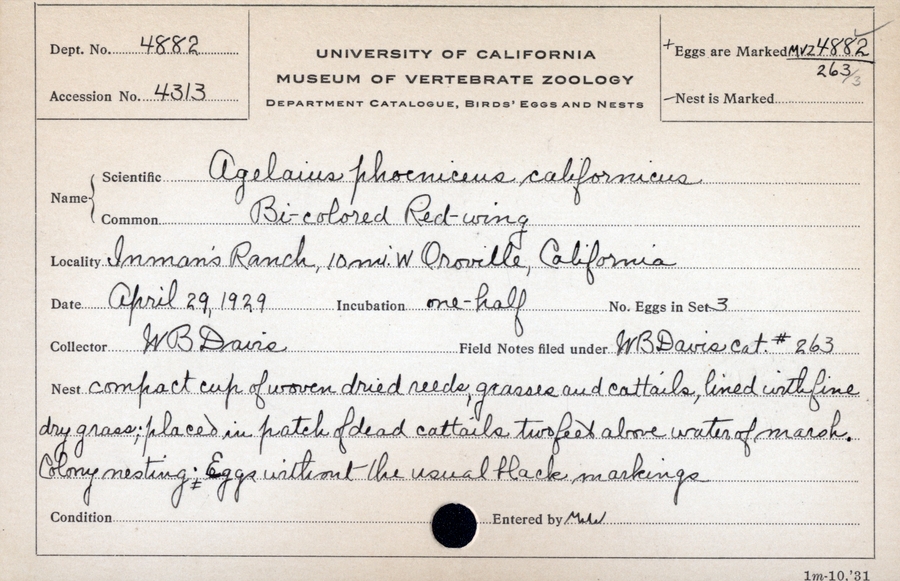 Dept. No. 4882
Accession No. 4313
UNIVERSITY OF CALIFORNIA
MUSEUM OF VERTEBRATE ZOOLOGY
DEPARTMENT CATALOGUE, BIRDS' EGGS AND NESTS
+ Eggs are Marked MVZ 4882
263/3
– Nest is Marked
Name
Scientific Agelaius phoeniceus californicus
Common Bi-colored Red-wing
Locality Inman's Ranch, 10 mi. W Oroville, California
Date April 29, 1929 Incubation one-half No. Eggs in Set 3
Collector WB Davis Field Notes filed under WB Davis cat. # 263
Nest compact cup of woven dried reeds, grasses and cattails, lined with fine
dry grass; placed in patch of dead cattails two feet above water of marsh.
Colony nesting; Eggs without the usual black markings
Condition Entered by
1m-10,'31